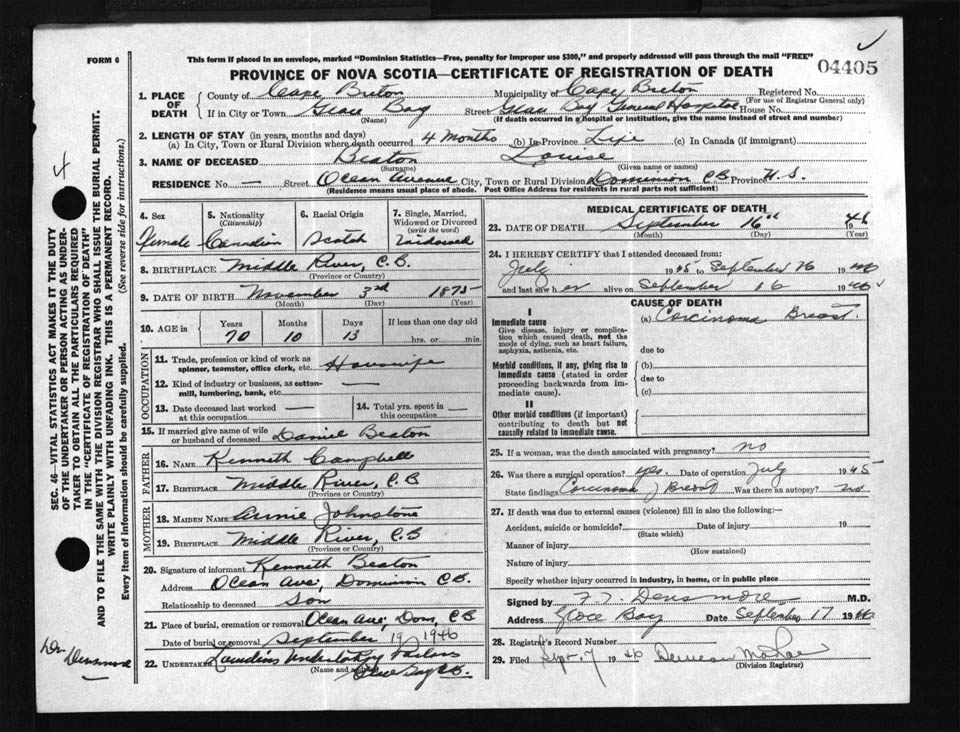 FORM 6
This form if placed in an envelope, marked "Dominion Statistics—Free, penalty for improper use $300," and properly addressed will pass through the mail "FREE"
PROVINCE OF NOVA SCOTIA—CERTIFICATE OF REGISTRATION OF DEATH
04405
1. PLACE OF DEATH
County of Cape Breton Municipality of Cape Breton Registered No.
(For use of Registrar General only)
If in City or Town Glace Bay Street Glace Bay General Hospital House No.
(Name) (If death occurred in a hospital or institution, give the name instead of street and number)
2. LENGTH OF STAY (in years, months and days)
(a) In City, Town or Rural Division where death occurred 4 Months (b) In Province Life (c) In Canada (if immigrant)
3. NAME OF DECEASED Beaton Louise
(Surname) (Given name or names)
RESIDENCE No. — Street Ocean Avenue City, Town or Rural Division Dominion CB Province N.S.
(Residence means usual place of abode. Post Office Address for residents in rural parts not sufficient)
4. Sex
Female
5. Nationality
(Citizenship)
Canadian
6. Racial Origin
Scotch
7. Single, Married, Widowed or Divorced
(write the word)
Widowed
8. BIRTHPLACE Middle River, C.B.
(Province or Country)
9. DATE OF BIRTH November 3rd 1875
(Month) (Day) (Year)
10. AGE in
Years Months Days If less than one day old
70 10 13 hrs. or min.
OCCUPATION
11. Trade, profession or kind of work as
spinner, teamster, office clerk, etc. Housewife
12. Kind of industry or business, as cotton-
mill, lumbering, bank, etc. —
13. Date deceased last worked
at this occupation —
14. Total yrs. spent in
this occupation —
15. If married give name of wife
or husband of deceased Daniel Beaton
FATHER
16. NAME Kenneth Campbell
17. BIRTHPLACE Middle River, C.B
(Province or Country)
MOTHER
18. MAIDEN NAME Annie Johnstone
19. BIRTHPLACE Middle River, C.B
(Province or Country)
20. Signature of informant Kenneth Beaton
Address Ocean Ave, Dominion C.B.
Relationship to deceased Son
21. Place of burial, cremation or removal Ocean Ave, Dom, C.B
Date of burial or removal September 19 1946
22. UNDERTAKER Undertaking Parlors
(Name and address) Glace Bay CB.
MEDICAL CERTIFICATE OF DEATH
23. DATE OF DEATH September 16th 1946
(Month) (Day) (Year)
24. I HEREBY CERTIFY that I attended deceased from:
July 1945 to September 16 1946
and last saw her alive on September 16 1946
CAUSE OF DEATH
I
Immediate cause
Give disease, injury or complica-
tion which caused death, not the
mode of dying, such as heart failure,
asphyxia, asthenia, etc.
(a) Carcinoma Breast.
due to
Morbid conditions, if any, giving rise to
immediate cause (stated in order
proceeding backwards from im-
mediate cause).
(b)
due to
(c)
II
Other morbid conditions (if important)
contributing to death but not
causally related to immediate cause.
25. If a woman, was the death associated with pregnancy? no
26. Was there a surgical operation? yes. Date of operation July 1945
State findings Carcinoma of Breast Was there an autopsy? no
27. If death was due to external causes (violence) fill in also the following:—
Accident, suicide or homicide? Date of injury 19
(State which)
Manner of injury
(How sustained)
Nature of injury
Specify whether injury occurred in industry, in home, or in public place
Signed by Densmore M.D.
Address Glace Bay Date September 17 1946
28. Registrar's Record Number
29. Filed Sept. 7 1946
(Division Registrar)
SEC. 46—VITAL STATISTICS ACT MAKES IT THE DUTY
OF THE UNDERTAKER OR PERSON ACTING AS UNDER-
TAKER TO OBTAIN ALL THE PARTICULARS REQUIRED
IN THE "CERTIFICATE OF REGISTRATION OF DEATH"
AND TO FILE THE SAME WITH THE DIVISION REGISTRAR WHO SHALL ISSUE THE BURIAL PERMIT.
WRITE PLAINLY WITH UNFADING INK. THIS IS A PERMANENT RECORD.
Every item of information should be carefully supplied. (See reverse side for instructions.)
4
Dr. Densmore